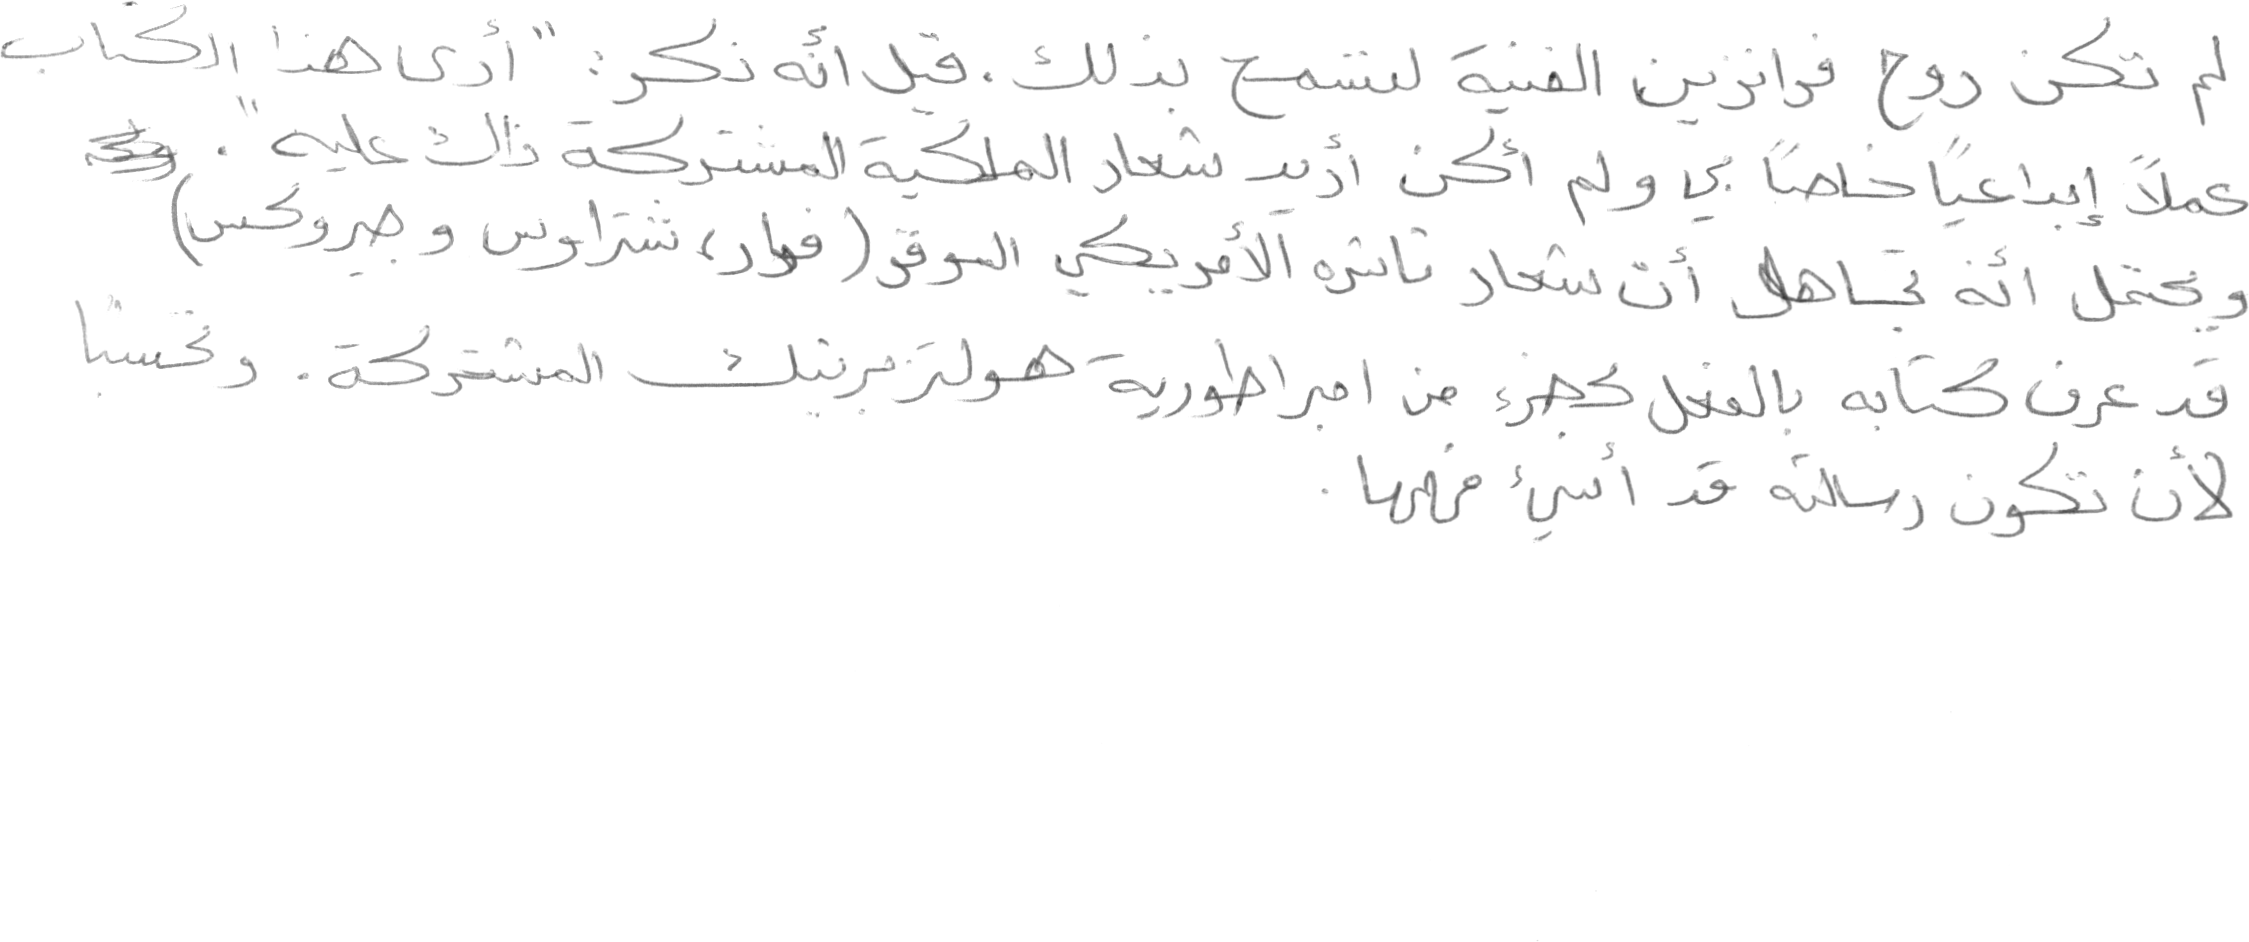 لم تكن روح فرانزين الفنية لتسمح بذلك. قيل أنه ذكر: "أرى هذا الكتاب
عملاً إبداعيًا خاصًا بي ولم أكن أريد شعار الملكية المشتركة ذاك عليه".
ويحتمل أنه تجاهل أن شعار ناشره الأمريكي الموقر (فرار، شتراوس وجيروكس)
قد عرف كتابه بالفعل كجزء من امبراطورية هولتزبرينك المشتركة. وتحسبًا
لأن تكون رسالته قد أسيء فهمها.